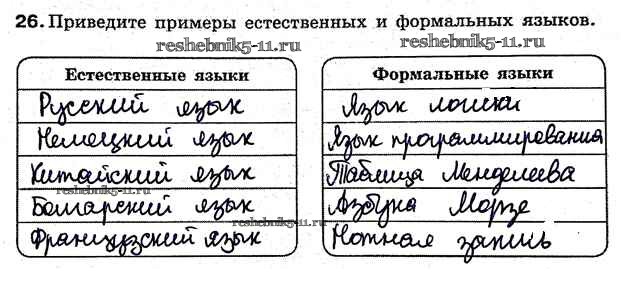 26. Приведите примеры естественных и формальных языков.
reshebnik5-11.ru reshebnik5-11.ru
Естественные языки
Русский язык
Немецкий язык
Китайский язык
reshebnik5-11.ru
Болгарский язык
Французский язык
Формальные языки
Язык логики
Язык программирования
Таблица Менделеева
Азбука Морзе
reshebnik5-11.ru
Нотная запись